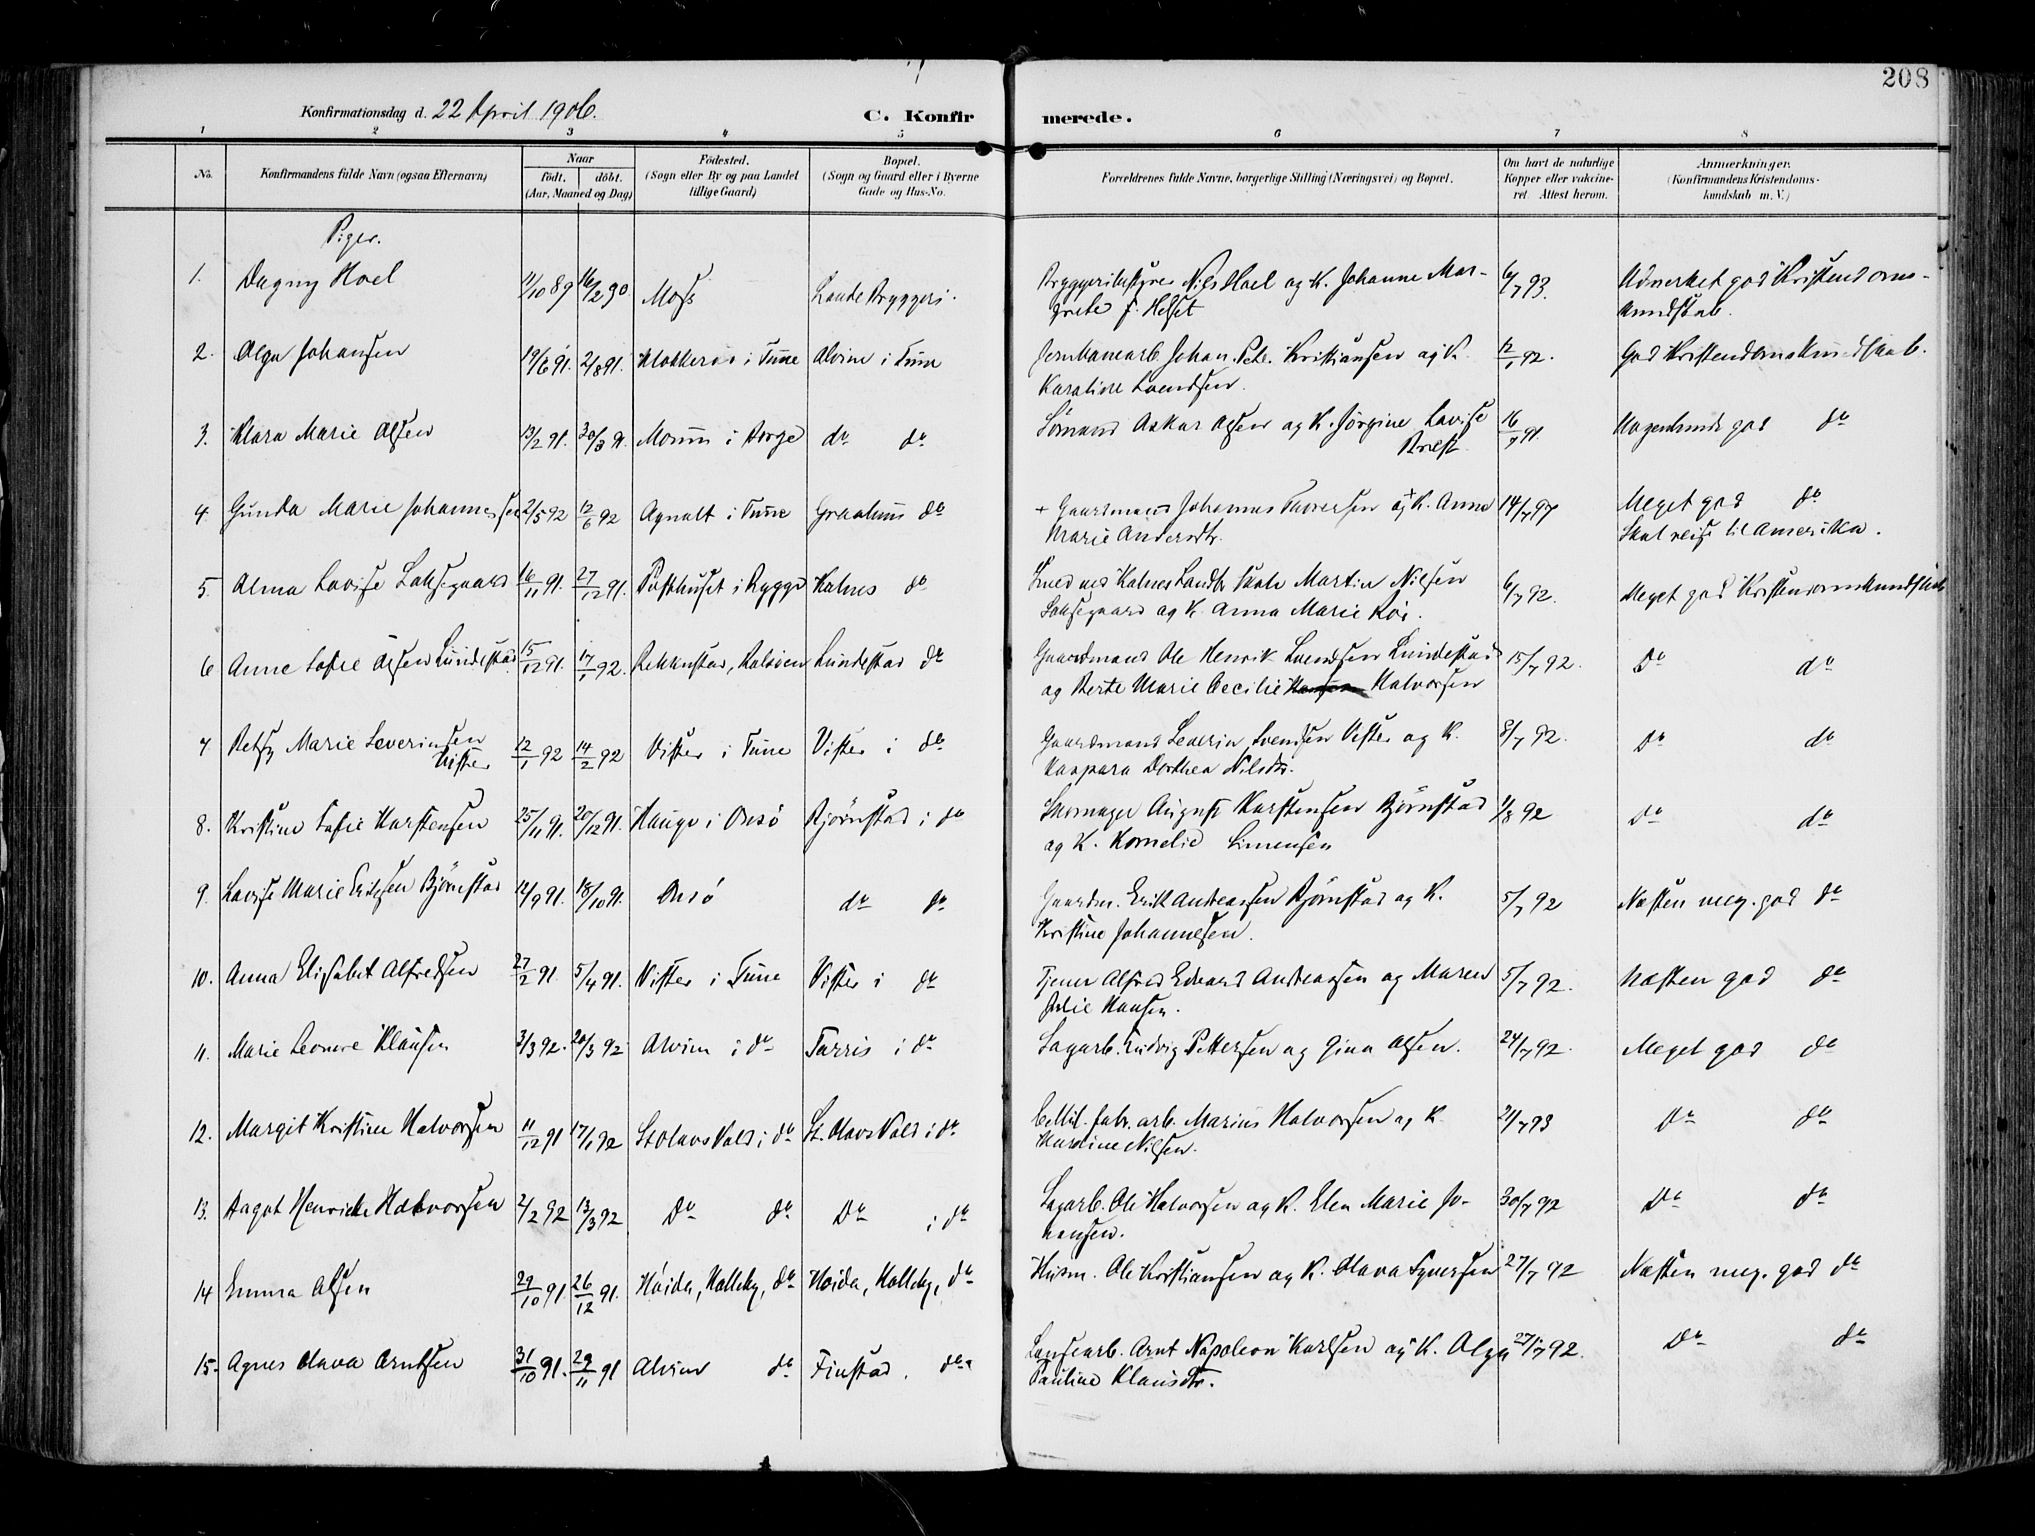 208
Konfirmationsdag d. 22 April 1906.
C. Konfirmerede.
1 2 3 4 5 6 7 8
No. Konfirmandens fulde Navn (ogsaa Efternavn) Naar født. døbt. (Aar, Maaned og Dag) Fødested. (Sogn eller By og paa Landet tillige Gaard) Bopæl. (Sogn og Gaard eller i Byerne Gade og Hus-No. Forældrenes fulde Navne, borgerlige Stilling (Næringsvei) og Bopæl. Om havt de naturlige Kopper eller vaccineret. Attest herom. Anmærkninger. (Konfirmandens Kristendomskundskab m. V.)
Piger.
1. Dagny Hoel 11/10 89 16/2 90. Moss Lande Bryggeri. Bryggeribestyrer Nils Hoel og K. Johanne Mar-
grete f. Helset 6/7 93. Udmerket god Kristendoms-
kundskab.
2. Olga Johansen 19/6 91. 2/8 91. Klokkerød i Tune Alvim i Tune Jernbanearb. Johan Petr. Kristiansen og K.
Karoline Svendsen. 12/1 92. God Kristendomskundskab.
3. Klara Marie Olsen 13/2 91. 30/3 91. Moum i Borge do do Sömand Oskar Olsen og K. Jörgine Lovise 16/7 91. Nogenlunde god do
4. Gunda Marie Johannessen 2/5 92 12/6 92 Agnalt i Tune Graalum do + Gaardmand Johannes Iversen og + K. Anne
Marie Andersdtr. 14/7 97 Meget god do
Skal reise til Amerika.
5. Alma Lovise Laksegaard 16/11 91. 27/12 91. Posthuset i Rygge Kalnes do Smed ved Kalnes Landbr. skole Martin Nilsen
Laksegaard og K. Anna Marie 6/7 92. Meget god Kristendomskundskab
6 Anne Sofie Olsen Lundestad 15/12 91. 17/1 92. Rekkustad, Rolvsøen Lundestad do Gaardmand Ole Henrik Svendsen Lundestad
og Berte Marie Cecilie Halvorsen 15/7 92. Do do
7 Betsy Marie Severinsen
Vister 12/1 92 14/2 92 Vister i Tune Vister i do Gaardmand Severin Svendsen Vister og K.
Kaspara Dorthea Nilsdtr. 8/7 92. Do do
8. Kristine Sofie Karstensen 25/11 91. 20/12 91. Hauge i Onsö Björnstad i do Skomager August Karstensen Björnstad
og K. Kornelie Simensen 1/8 92 Do do
9. Lovise Marie Eriksen Björnstad 12/9 91. 18/10 91. Onsö do do Gaardm. Erik Andreassen Björnstad og K.
Kristine Johannesen. 5/7 92 Næsten meg. god do
10. Anna Elisabet Alfredsen 27/2 91. 5/4 91. Vister i Tune Vister i do Tjener Alfred Edvard Andreassen og Maren
Julie Hansen. 5/7 92. Næsten god do
11. Marie Leonore Klausen 3/3 92. 20/3 92 Alvim i do Tarris i do Sagarb. Ludvig Pettersen og Gina Olsen. 24/7 92. Meget god do
12. Margit Kristine Halvorsen 11/12 91 17/1 92 St Olavs Vold i do St. Olavs Vold i do Cellul. fabr. arb. Marius Halvorsen og K
Karoline Nilsen. 21/7 93 Do do
13. Aagot Henrikke Halvorsen 2/2 92 13/3 92 Do do Do i do Sagarb. Ole Halvorsen og K. Elen Marie Jo-
hansen. 30/7 92 Do do
14 Emma Olsen 29/10 91. 26/12 91. Höida, Halleby, do Höida, Halleby, do Husm. Ole Kristiansen og K. Olava Syversen 27/7 92 Næsten meg. god do
15. Agnes Olava Arntsen 31/10 91. 29/11 91 Alvim do Finstad. do Lensearb. Arnt Napoleon Karlsen og K. Olga
Pauline Klausdtr. 27/7 92. Do do